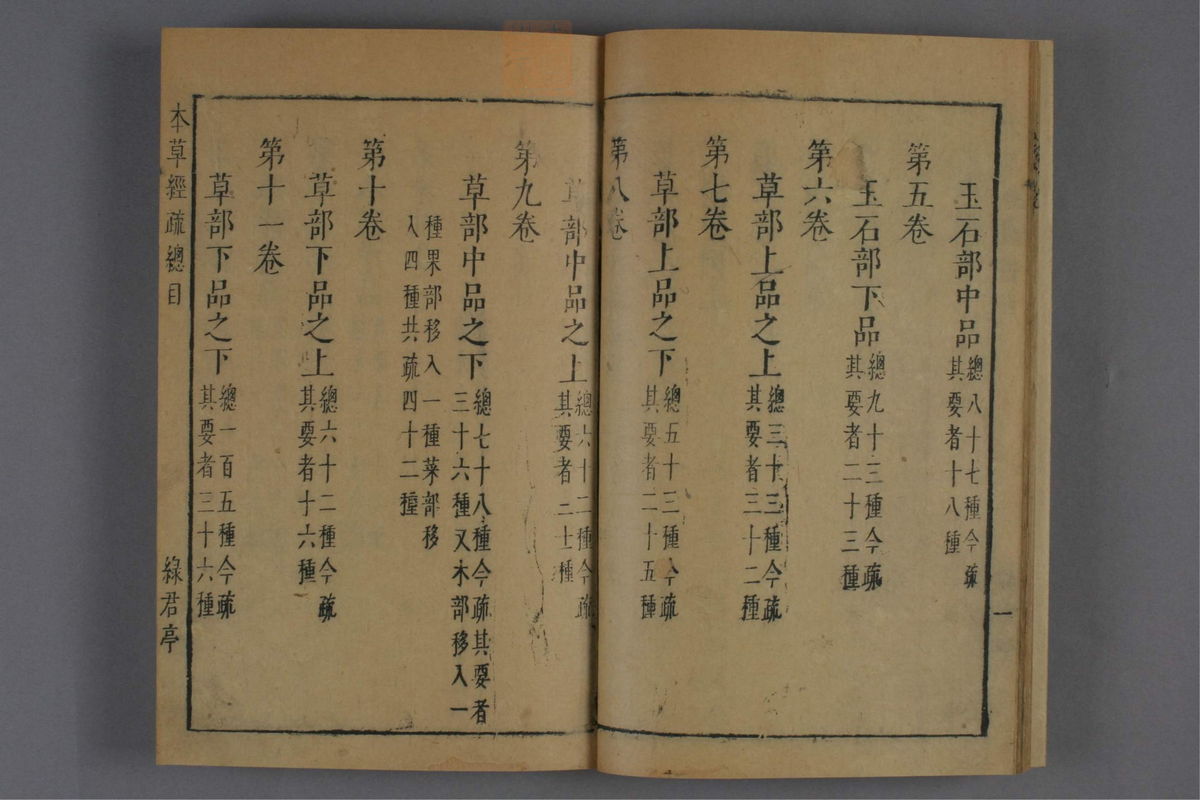 玉石部中品總八十七種今疏其要者十八種
第五卷
玉石部下品總九十三種今疏其要者二十三種
第六卷
草部上品之上總三十三種今疏其要者三十二種
第七卷
草部上品之下總五十三種今疏其要者二十五種
第八卷
草部中品之上總六十二種今疏其要者二十種
第九卷
草部中品之下總七十八種今疏其要者三十六種又木部移入一
種果部移入一種菜部移
入四種共疏四十二種
第十卷
草部下品之上總六十二種今疏其要者十六種
第十一卷
草部下品之下總一百五種今疏其要者三十六種
本草經疏總目
綠君亭
一